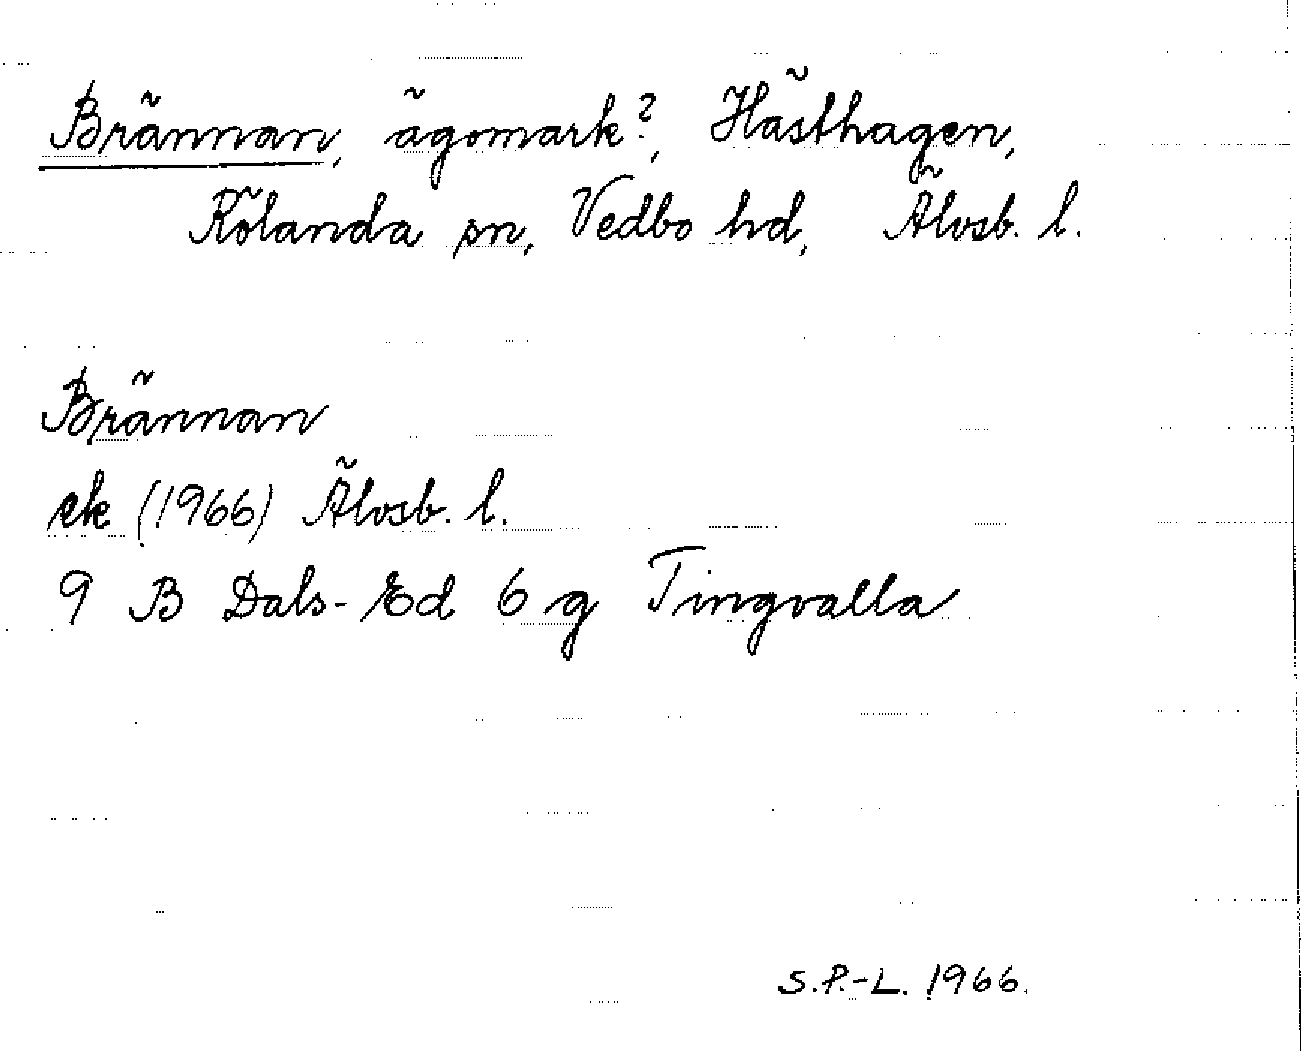 Brännan, ägomark?, Hästhagen,
Rölanda sn, Vedbo hd, Älvsb. l.
Brännan
ek (1966) Älvsb. l.
9 B Dals-Ed 6 g Tingvalla
S.P.-L. 1966.